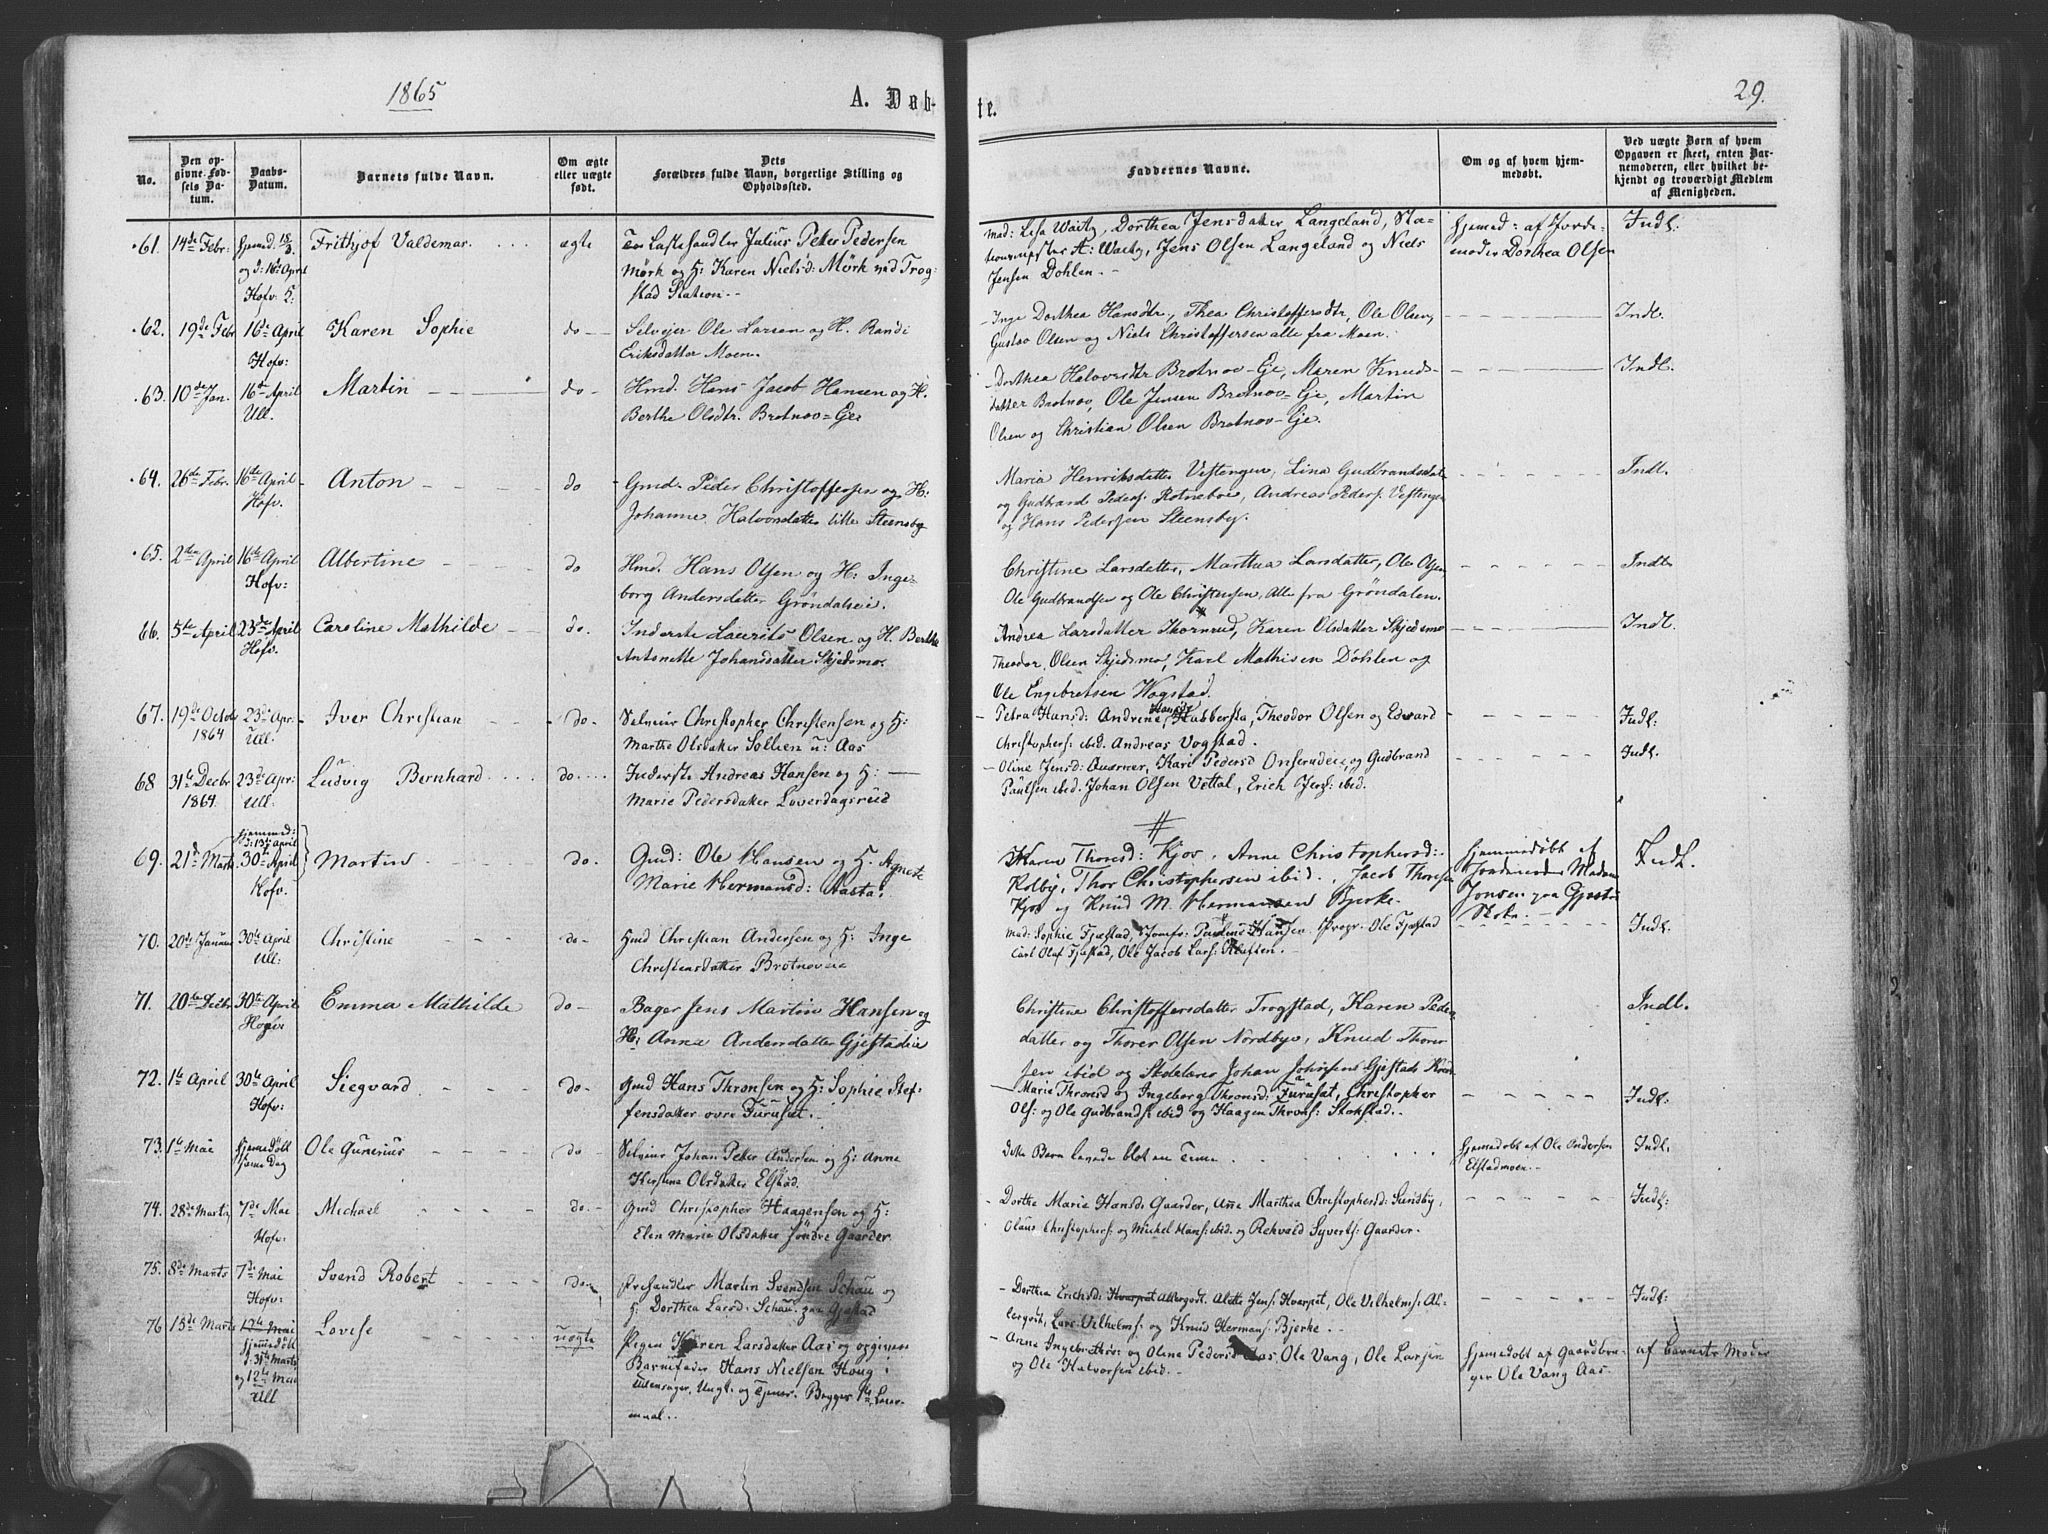 1865
A. Døb-
te.
29.
No.
Den op-
givne Fød-
sels Da-
tum.
Daabs-
Datum.
Barnets fulde Navn.
Om ægte
eller uægte
født.
Dets
Forældres fulde Navn, borgerlige Stilling og
Opholdssted.
Faddernes Navne.
Om og af hvem hjem-
medøbt.
Ved uægte Børn af hvem
Opgaven er skeet, enten Bar-
nemoderen, eller hvilket be-
kjendt og troværdigt Medlem
af Menigheden.
61. 14de Febr. hjemd. 18/3 og d: 16de April Hofv. K: Frithjof Valdemar. ægte
Lastehandler Julius Peter Pedersen
Mörk og H: Karen Nielsd: Mörk ved Trog-
stad Station.
Mad: Lisa Waity, Dorthea Jensdatter Langeland, Sta-
A: Waity, Jens Olsen Langeland og Niels
Jensen Dohlen.
hjemd: af Jorde-
moder Dorthea Olsen
Indl.
62. 19de Febr 16de April Hofv: Karen Sophie do
Selveier Ole Larsen og H. Randi
Eriksdatter Moen.
Inge Dorthea Hansdtr, Thea Christoffersdtr, Ole Olsen,
Gustav Olsen og Niels Christoffersen alle fra Moen.
Indl.
63. 10de Jan. 16de April Ull. Martin do
Hmd. Hans Jacob Hansen og H.
Berthe Olsdtr. Brotnov=Eje
Dorthea Halvorsdtr Brotnov-Eje, Maren Knuds-
datter Brotnov, Ole Jensen Brotnov=Eje, Martin
Olsen og Christian Olsen Brotnov-Eje.
Indl.
64. 26de Febr. 16de April Hofv. Anton do
Gmd. Peder Christoffersen og H:
Johanne Halvorsdatter lille Steensby
Maria Henriksdatter Vestengen, Lina Gudbrandsdat
og Gudbrand Peders: Rotneboe, Andreas Peders: Vestengen
og Hans Pedersen Steensby.
Indl.
65. 2den April 16de April Hofv: Albertine do
Hmd. Hans Olsen og H: Inge-
borg Andersdatter Gröndalseie.
Christine Larsdatter, Marthea Larsdatter, Ole Olsen
Ole Gudbrandsen og Ole Christensen, Alle fra Gröndalen.
Indl
66. 5te April 23de April Hofv. Caroline Mathilde do.
Inderste Laurits Olsen og H. Berthe
Antonette Johansdatter Skjedsmo.
Andrea Larsdatter Thornrud, Karen Olsdatter Skjedsmo
Theodor Olsen Skjedsmo, Karl Mathisen Döhlen og
Ole Engebretsen Wogstad.
Indl.
67. 19de Octob 1864 23de Apr. Ull. Iver Christian do.
Selveier Christopher Christensen og H:
Marthe Olsdatter Sollien u: Aas
Petra Hansd: Andrine Hansd Hubbersta, Theodor Olsen og Edvard
Christophers: ibid. Andreas Vogstad.
Indl:
68 31te Decbr 1864. 23de Apr: Ull: Ludvig Bernhard do.
Inderste Andreas Hansen og H:
Marie Pedersdatter Loverdagsrud
Oline Jensd: Quærner, Kari Pedersd Onserudeie, og Gudbrand
Paulsen ibid. Johan Olsen Vettal, Erich ibid.
Indl.
69. 21de Marts hjemmed: d: 13de April 30te April Hofv. Martin do.
Gmd: Ole Hansen og H. Agnete
Marie Hermansd: Aasta.
Karen Thoresd: Kjos, Anne Christophersd:
Kolby, Thor Christophersen ibid., Jacob Thoresen
Kjos og Knud M. Hermansen Bjerke.
hjemmedøbt af
Jordemoder Madam
Jonsen paa Gjestu
Indl.
70. 20de Januar 30te April Ull: Christine do
Hmd Christian Andersen og H: Inge
Christensdatter Brotnoveie
Mad: Sophie Fjæstad, Jomfr: Hansen, Progr. Ole Fjæstad
Carl Olaf Fjæstad, Ole Jacob Lars: Kluften.
Indl.
71. 20de Decbr 30te April Hofv Emma Mathilde do
Bager Jens Martin Hansen og
H: Anna Andersdatter Gjestadeie
Christine Christoffersdatter Trogstad, Karen Peder
datter og Thorer Olsen Nordbye, Knud Thorer
sen ibid og Skolelærer Johan Johnsen Gjestads
Indl.
72. 1te April 30te April Hofv: Siegvard do
Gmd Hans Thronsen og H: Sophie Stef-
fensdatter övre Furuset.
Marie Thronsd og Ingeborg Thronsd: Furuset, Christopher
Ols: og Ole Gudbrands: ibid og Haagen Throns: Stokstad.
Indl:
73. 1te Mai hjemmedöbt Ole Gunerius do
Selveier Johan Peter Andersen og H: Anne
Kerstina Olsdatter Elstad.
dette Barn levede blot en Time
hjemmedöbt af Ole Andersen
Elstadmoen.
Indl.
74. 28de Marts 7de Mai Hofv: Michael do.
Gmd Christopher Haagensen og H:
Elen Marie Olsdatter söndre Gaarder
Dorthe Marie Hansd: Gaarder, Anne Marthea Christophersd: Sundby,
Olaus Christophers: og Michel Hans: ibid. og Rekvald Syverts: Gaarder.
Indl:
75. 8de Marts 7de Mai Hofv: Svend Robert do
Prehandler Martin Svendsen Schau og
H: Dorthea Larsd: Schau paa Gjestad
Dorthea Erichsd: Hvarpet Allergodt, Alette Jens: Hvarpet, Ole Vilhelms: Al-
lergodt, Lars Vilhelms: og Knud Hermans: Bjerke.
Indl:
76 15de Marts 12te Mai hjemmedöbt d: 31te Marts og 12te Mai Ull Lovise uægte
Pigen Karen Larsdatter Aas og opgiven
Barnefader Hans Nielsen Houg
Ungk. og Tjener. Begges 1ste Leier-
maal.
Anne Ingebretsd: og Oline Pedersd Aas, Ole Vang, Ole Larsen
og Ole Halvorsen ibid.
hjemedöbt af Gaardbru-
ger Ole Vang Aas.
af Barnets Moder